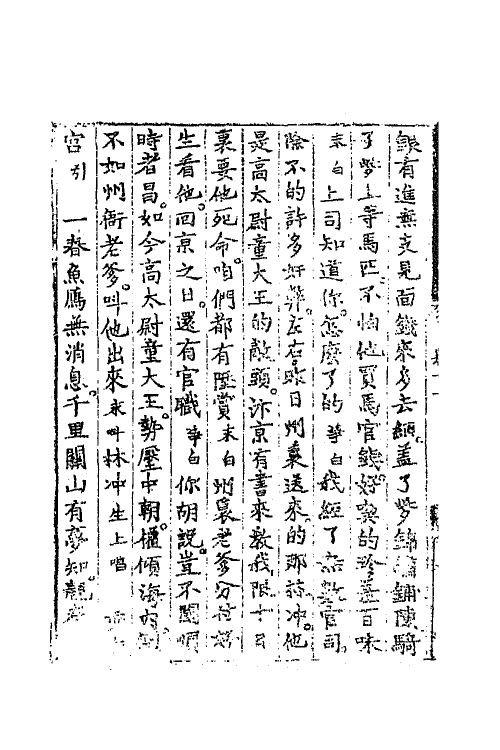 錢有進無支見面錢來多去
了學上等馬匹不怕他買馬官錢好喫的珍羞百味
末白上司知道你怎麼了的 淨白我經了無數官司
除不的許多好 左右昨日州裏送來的那林冲他
是高太尉童大王的敵頭汴京有書來教我限十日
裏要他死命咱們都有陞賞 末白州裏老爹分付好
生看他回京之日還有官職 淨白你胡說豈不聞
時者昌如今高太尉童大王勢壓中朝權傾海内
不如州衙老爹叫他出來 末叫林冲 生上唱
宮引 一春魚鴈無消息千里關山有夢知